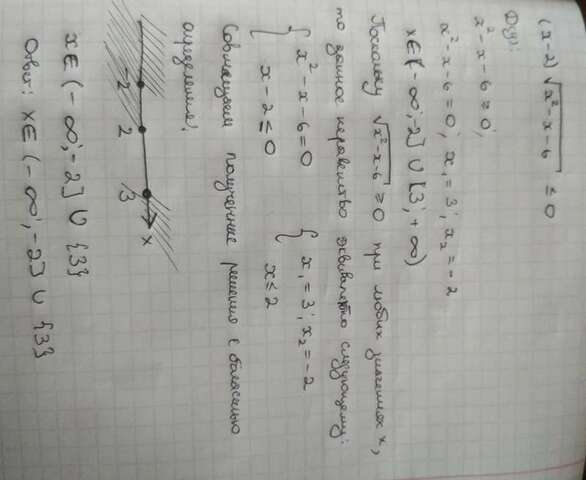 (x-2) √x²-x-6 ≤ 0
x²-x-6 ≥ 0;
x²-x-6=0; x₁=3; x₂=-2
x∈(-∞;-2] ∪ [3;+∞)
Поскольку √x²-x-6 ≥ 0 при любых значениях x,
то данное неравенство эквивалентно следующему:
{ x²-x-6=0 { x₁=3; x₂=-2
x-2≤0 x≤2
Совмещаем полученные решения с областью
определения:
-2 2 3 x
x∈(-∞;-2] ∪ {3}
Ответ: x∈(-∞;-2] ∪ {3}